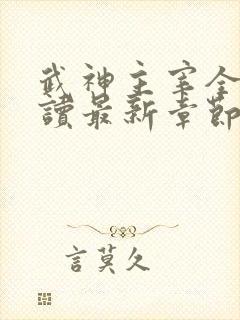 武神主宰全
讀最新章節
言莫久